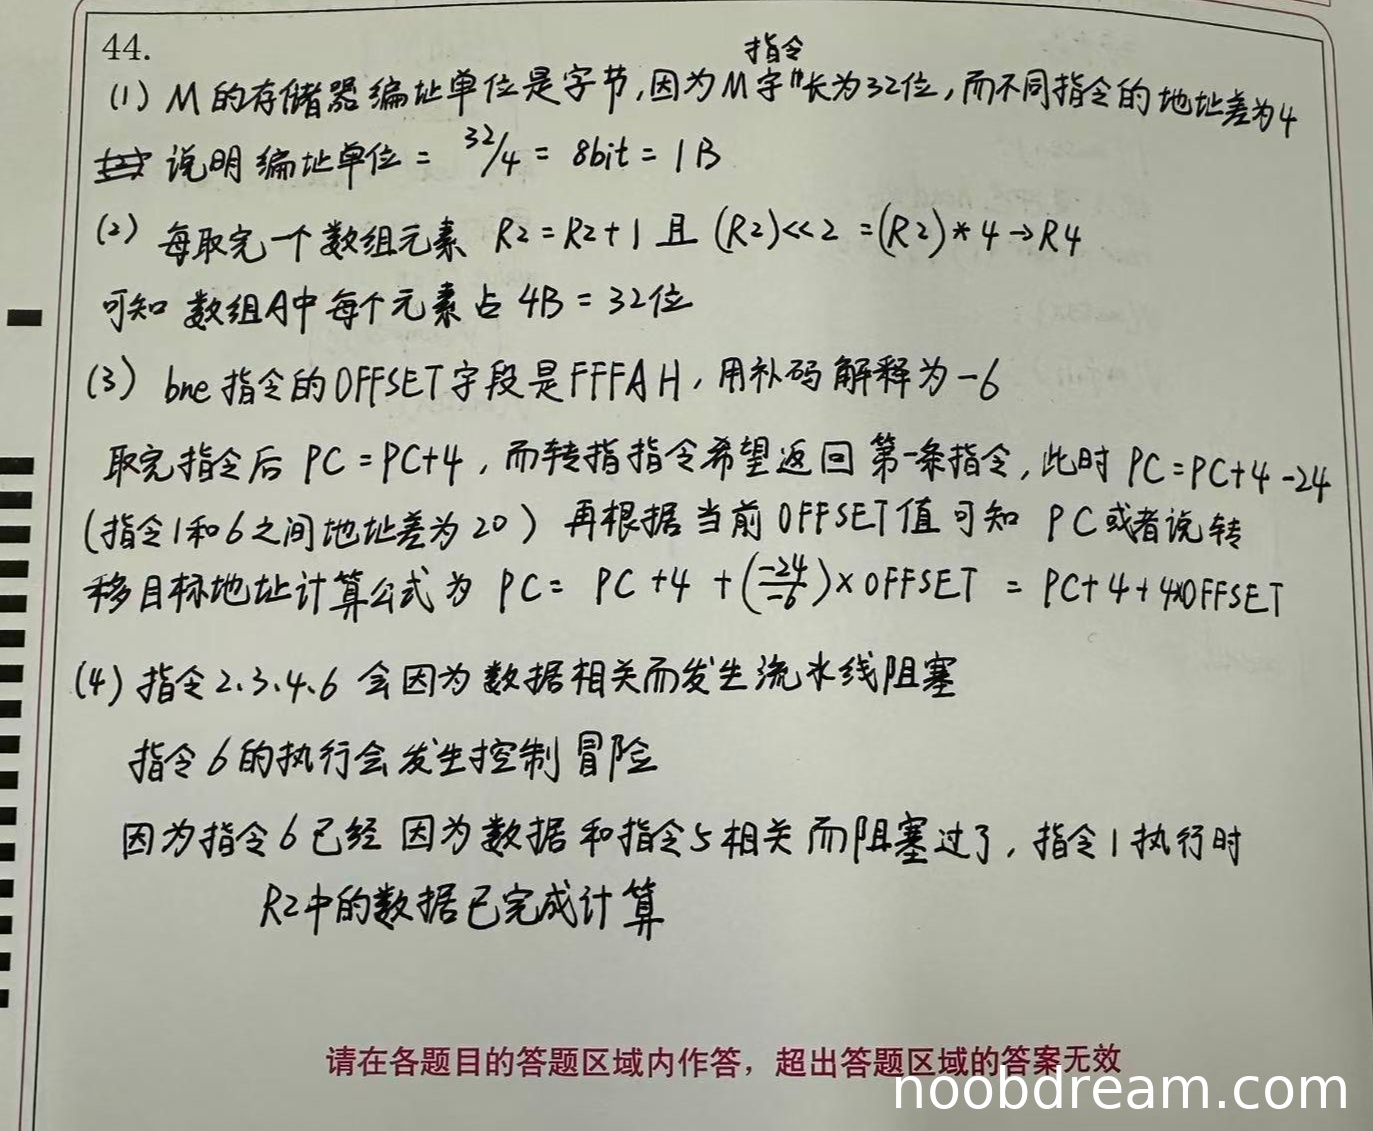 44.
指令
(1) M的存储器编址单位是字节,因为M字长为32位,而不同指令的地址差为4
说明编址单位 = 32/4 = 8bit = 1B
(2) 每取完一个数组元素 R2=R2+1 且 (R2)<<2 =(R2)*4→R4
可知 数组A中每个元素占 4B = 32位
(3) bne指令的OFFSET字段是FFFAH,用补码解释为-6
取完指令后 PC=PC+4,而转指指令希望返回第一条指令,此时 PC=PC+4-24
(指令1和6之间地址差为20) 再根据当前OFFSET值可知 PC或者说转
移目标地址计算公式为 PC= PC+4 +(-24/-6)×OFFSET = PC+4+4×OFFSET
(4) 指令2、3、4、6 会因为数据相关而发生流水线阻塞
指令6的执行会发生控制冒险
因为指令6已经因为数据和指令5相关而阻塞过了,指令1执行时
R2中的数据已完成计算
请在各题目的答题区域内作答，超出答题区域的答案无效
noobdream.com